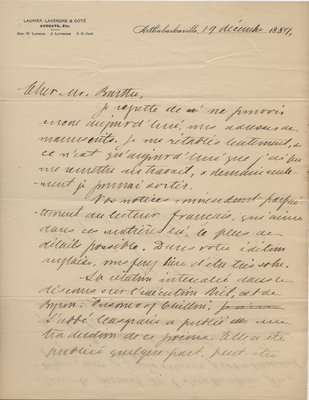 LAURIER, LAVERGNE & COTÉ
AVOCATS, Etc.
Hon. W. Laurier J. Lavergne P. H. Coté
Arthabaskaville, 19 décembre 1889,
Cher Mr. Barthe,
Je regrette de n' ne pouvoir
encore aujourd'hui, vous adresser de
manuscrits. Je me rétablis lentement, &
ce n'est qu'aujourd'hui que j'ai pu
me remettre au travail, & demain seule-
ment je pourrai sortir.
Vos notices conviendront parfai-
tement au lecteur français, qui aime
dans ces matières là, le plus de
détails possible. Dans votre édition
anglaise, vous ferez bien d'être très sobre.
La citation intercalée dans le
discours sur l'exécution Riel, est de
Byron: Prisoner of Chillon.
L'abbé Casgrain a publié une
traduction de ce poème. Elle a été
publiée quelque part, peut être